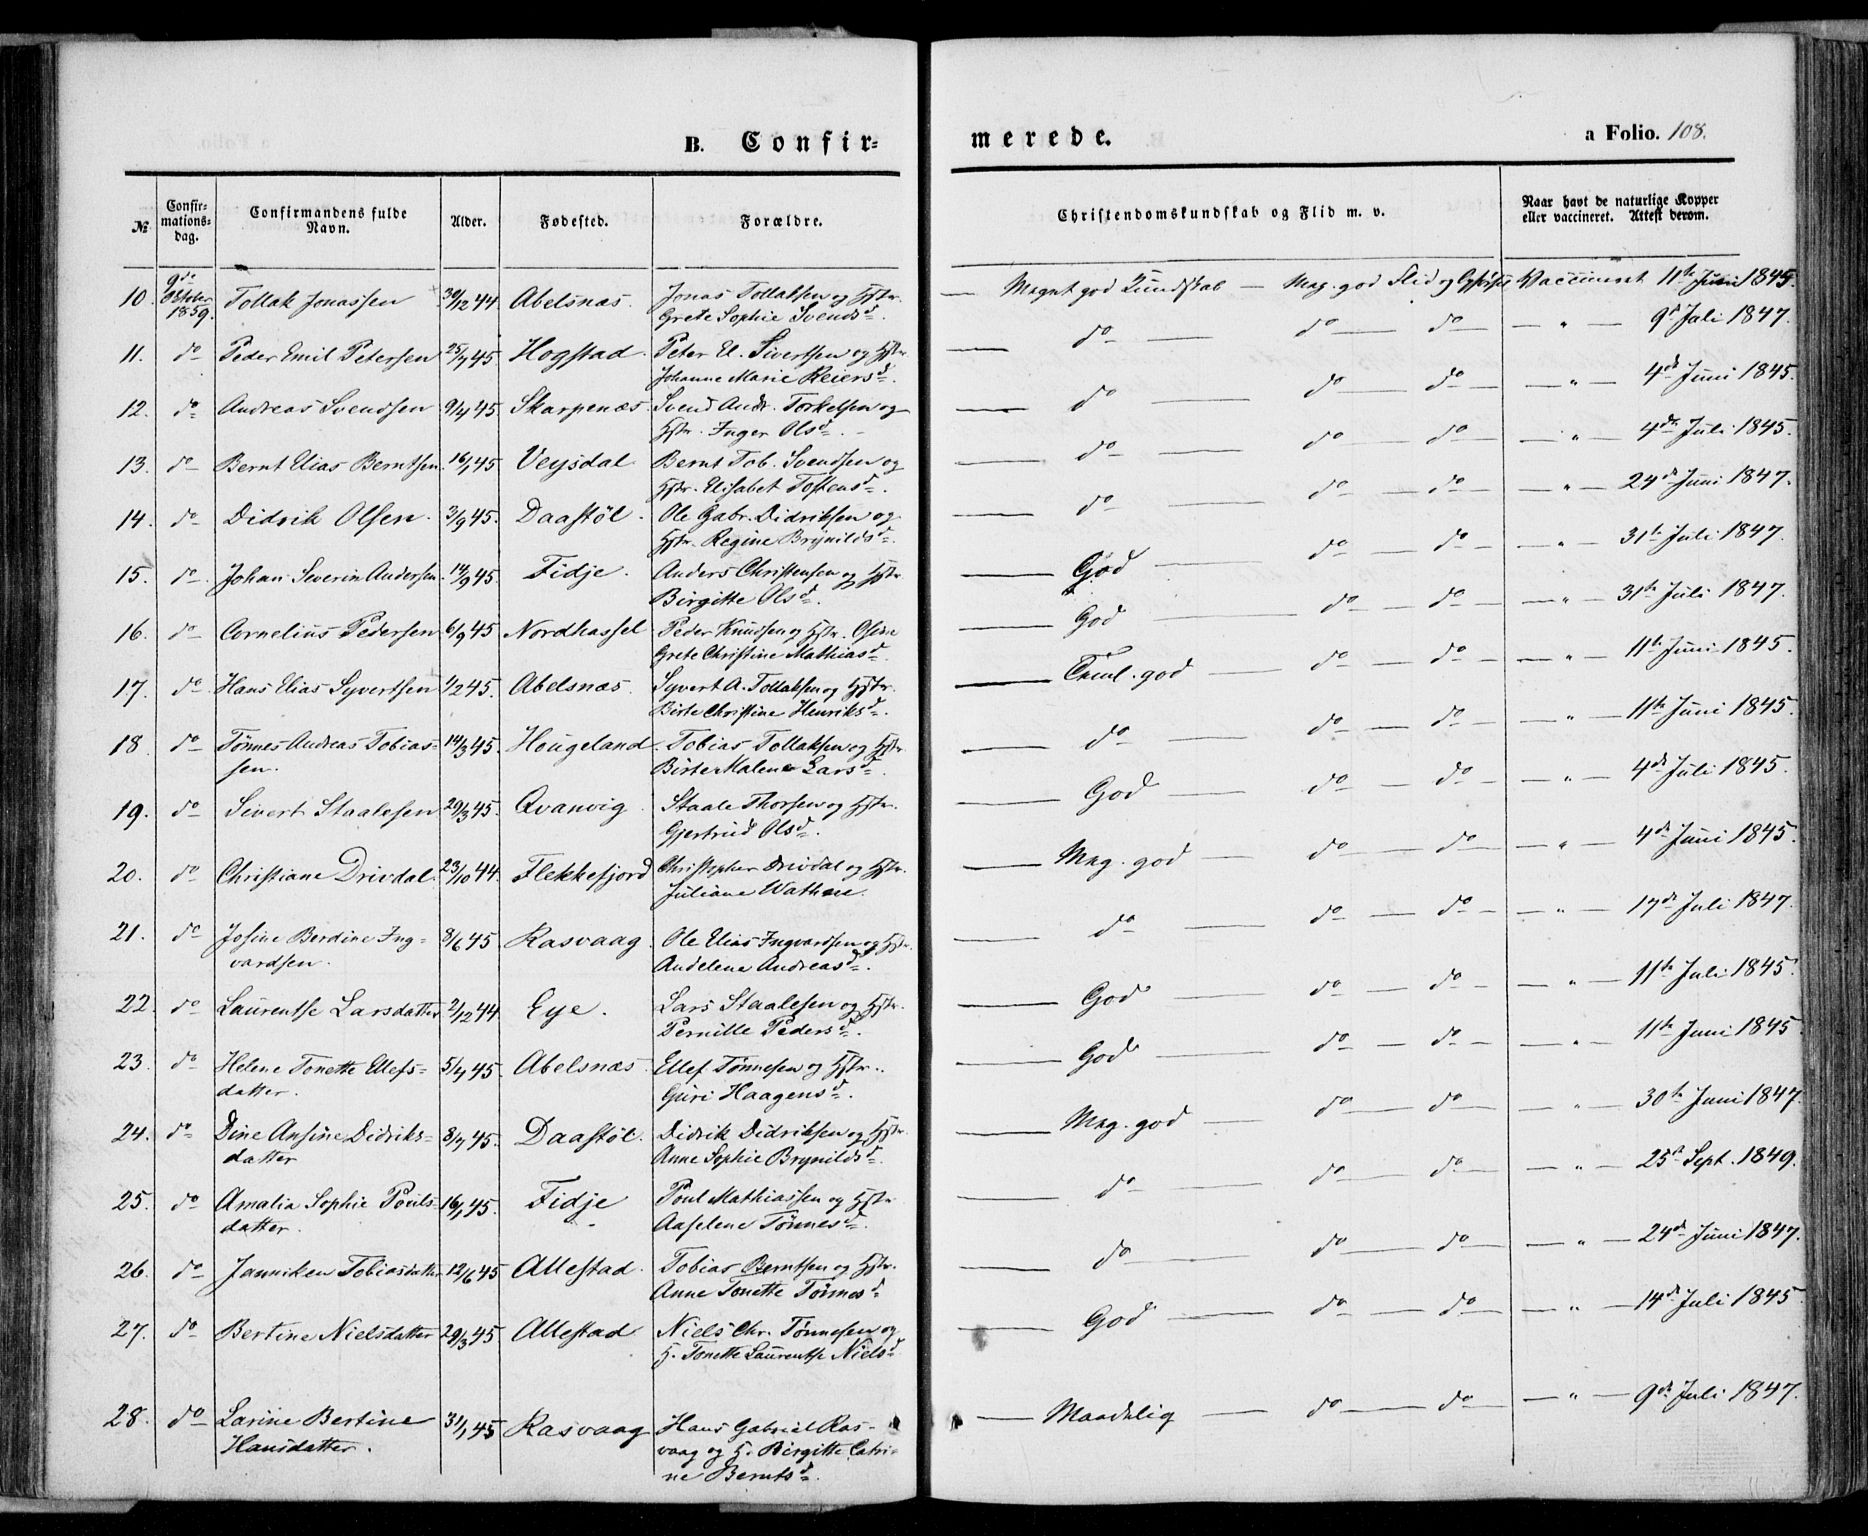 B. Confir-
merede.
a Folio. 108.
№
Confir-
mations-
dag.
Confirmandens fulde
Navn.
Alder.
Fødested.
Forældre.
Christendomskundskab og Flid m. v.
Naar havt de naturlige Kopper
eller vaccineret. Attest derom.
9de
Oktober
1859.
10. Tollak Jonassen 30/12 44 Abelsnæs. Jonas Tollaksen og Hstr.
Grete Sophie Svendsd. Meget god Kundskab — Meg. god Flid og Vaccineret 11te Juni 1845.
11. do Peder Emil Petersen 25/7 45. Hogstad. Peter E. Sivertsen og Hstr.
Johanne Marie Reiersd. do do do " 9d Juli 1847.
12. do Andreas Svendsen 9/4 45. Skarpenæs. Svend Andr. Torkelsen og
Hstr. Inger Olsd. do do do " 4de Juni 1845.
13. do Bernt Elias Berntsen. 16/1 45 Veisdal Bernt Tob. Svendsen og
Hstr. Elisabet Tostensd. do do do " 4de Juli 1845.
14. do Didrik Olsen. 3/9 45. Daastøl. Ole Gabr. Didriksen og
Hstr. Regine Brynildsd. do do do " 24de Juni 1847.
15. do Johan Severin Andersen. 14/9 45. Fidje. Anders Christensen og Hstr.
Birgitte Olsd. God do do " 31te Juli 1847.
16. do Cornelius Pedersen 6/9 45 Nordhassel Peder Knudsen og Hstr.
Grete Christine Mathiasd. God do do " 31te Juli 1847.
17. do Hans Elias Syvertsen 1/2 45. Abelsnæs. Syvert A. Tollaksen og Hstr.
Birte Christine Henriksd. Teml. god do do " 11te Juni 1845.
18 do Tønnes Andreas Tobias- 14/3 45. Hougeland. Tobias Tollaksen og Hstr.
sen. Birte Malene Larsd. do do do " 11te Juni 1845.
19. do Sivert Staalesen 29/3 45. Qvanvig. Staale Thorsen og Hstr.
Gjertrud Olsd. God do do " 4de Juli 1845.
20. do Christiane Drivdal. 23/10 44. Flekkefjord Christopher Drivdal og Hstr.
Juliane Wathne. Meg. god do do " 4de Juni 1845.
21. do Josine Berdine Ing- 8/6 45 Rasvaag. Ole Elias Ingvardsen og Hstr.
vardsen. Andelena Andreasd. do do do " 17de Juli 1847.
22. do Laurentse Larsdatter 2/12 44. Eye. Lars Staalesen og Hstr.
Pernille Pedersd. God do do " 11te Juli 1845.
23. do Helene Tonette Ellefs- 5/4 45. Abelsnæs. Ellef Tønnesen og Hstr.
datter. Guri Haagensd. God do do " 11te Juni 1845
24. do Dine Ansine Didriks- 8/7 45. Daastøl. Didrik Didriksen og Hstr.
datter Anne Sophie Brynildsd. Meg. god do do " 30te Juni 1847.
25. do Amalia Sophie Povels- 16/1 45. Fidje Poul Mathiassen og Hstr
datter. Aaselene Tønnesd. do do do " 25d Sept. 1849.
26. do Janniken Tobiasdatter 12/6 45 Allestad. Tobias Berntsen og Hstr.
Anne Tonette Tønnesd. do do do " 24de Juni 1847.
27. do Bertine Nielsdatter 29/3 45 Allestad Niels Chr. Tønnesen og
H. Tonette Laurentse Nielsd. God do do " 14de Juli 1845
28. do Larine Bertine 31/1 45 Rasvaag Hans Gabriel Ras-
Hansdatter. vaag og H. Birgitte Catri-
ne Berntsd. Maadelig do do " 9de Juli 1847.